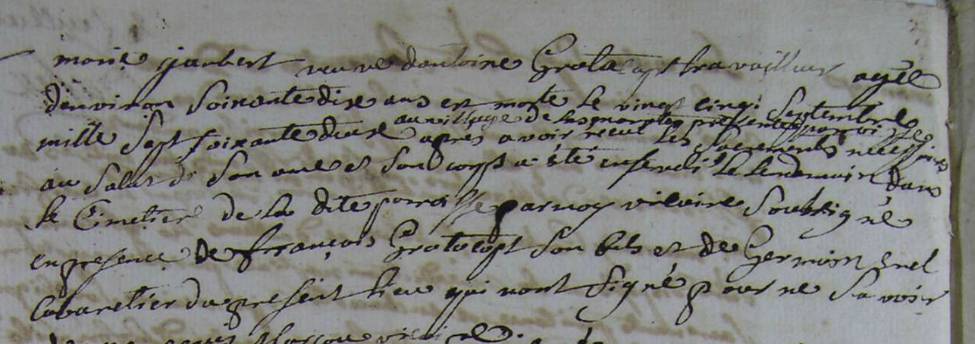 marie jaubert veuve dantoine Gratacapt travailleur agée
denviron soixante dix ans est morte le vingt cinq Septembre
au village de presente parroisse
mille Sept soixante douze apres avoir receu les sacrements necess
au salut de son ame et son corps a été enseveli le lendemain dans
le Cimetier de la dite parroisse par moy vicaire soubsigné
en presence de françois Gratacapt son fils et de Germain
Cabaretier du present lieu qui nont signé pour ne savoir